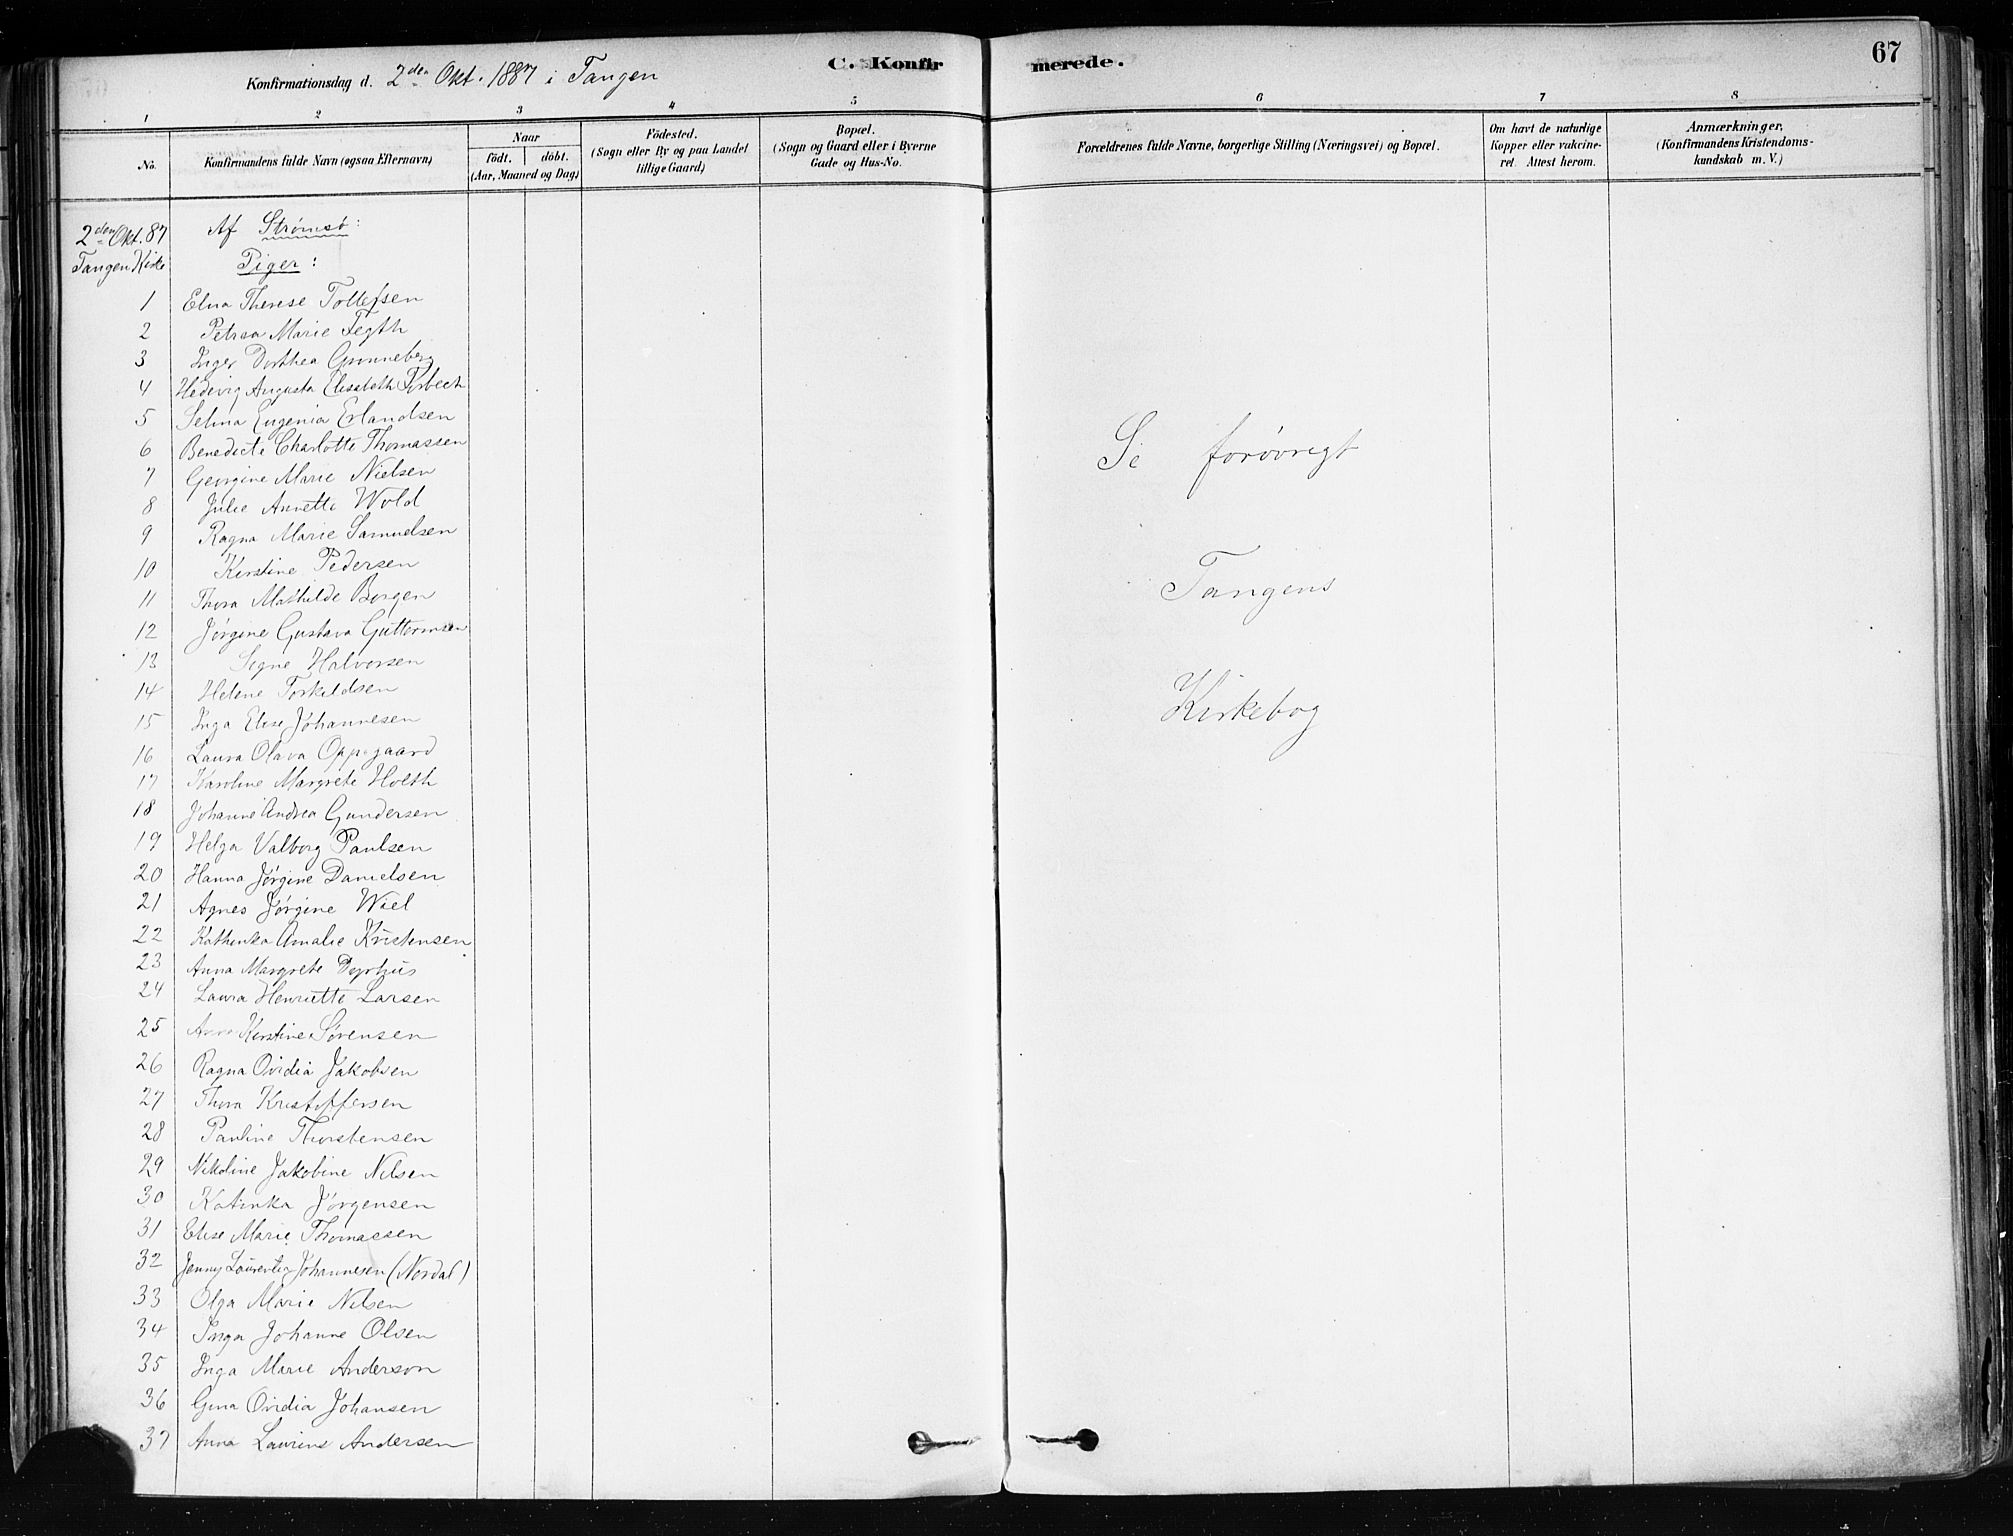 67
C. Konfirmerede.
Konfirmationsdag d. 2den Okt. 1887 i Tangen
1 2 3 4 5 6 7 8
No.
Konfirmandens fulde Navn (ogsaa Efternavn)
Naar
födt. döbt.
(Aar, Maaned og Dag)
Födested.
(Sogn eller By og paa Landet
tillige Gaard)
Bopæl.
(Sogn og Gaard eller i Byerne
Gade og Hus-No.
Forældrenes fulde Navne, borgerlige Stilling (Næringsvei) og Bopæl.
Om havt de naturlige
Kopper eller vakcine-
ret. Attest herom.
Anmærkninger,
(Konfirmandens Kristendoms-
kundskab m. V.)
2den Okt. 87
Tangen Kirke
Af Strømsö:
Piger:
1 Elna Therese Tollefsen
2 Petrea Marie Fegth
3 Inger Dorthea Grønneberg
4 Hedevig Augusta Elisabeth Torbech
5 Selma Eugenia Erlandsen
6 Benedicte Charlotte Thomassen
7 Georgine Marie Nielsen
8 Julie Annette Wold
9 Ragna Marie Samuelsen
10 Kirstine Pedersen
11 Thora Mathilde Borgen
12 Jørgine Gustava Guttormsen
13 Signe Halvorsen
14 Helene Torkildsen
15 Inga Elise Johannesen
16 Laura Olava Oppegaard
17 Karoline Margrete Holth
18 Johanne Andrea Gundersen
19 Helga Valborg Paulsen
20 Hanna Jørgine Danielsen
21 Agnes Jørgine Wiel
22 Kathinka Amalie Kristensen
23 Anna Margrete Dyrhus
24 Laura Henriette Larsen
25 Anna Kirstine Sørensen
26 Ragna Ovidia Jakobsen
27 Thora Kristoffersen
28 Pauline Thorstensen
29 Nikoline Jakobine Nilsen
30 Katinka Jörgensen
31 Elise Marie Thomassen
32 Jenny Laurentze Johannesen (Nordal)
33 Olga Marie Nilsen
34 Inga Johanne Olsen
35 Inga Marie Anderson
36 Gina Ovidia Johansen
37 Anna Laurine Andersen
Se forövrigt
Tangens
Kirkebog